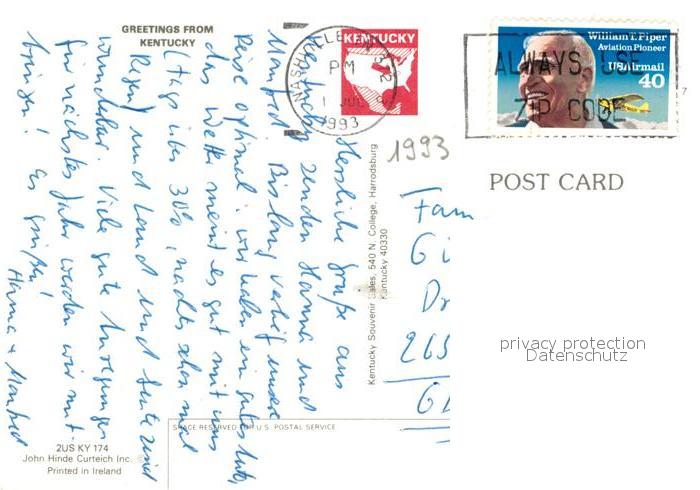 GREETINGS FROM
KENTUCKY
KENTUCKY
NASHVILLE TN 372
PM
1 JUL
1993
William T. Piper
Aviation Pioneer
USAirmail
40
ALWAYS USE
ZIP CODE
1993
POST CARD
Herzliche Grüße aus
Kentucky senden Hanna und
Manfred. Bislang verlief unsere
Reise optimal: wir haben ein gutes Auto,
das Wetter meint es gut mit uns
(tags über 30°, nachts schon mal
Regen) und Land und Leute sind
wunderbar. Viele gute Anregungen
für nächstes Jahr werden wir mit-
bringen! Es grüßen
Hanna + Manfred
Kentucky Souvenir Sales, 540 N. College, Harrodsburg
Kentucky 40330
Fam
G
Dr
265
privacy protection
Datenschutz
SPACE RESERVED FOR U.S. POSTAL SERVICE
2US KY 174
John Hinde Curteich Inc. ©
Printed in Ireland